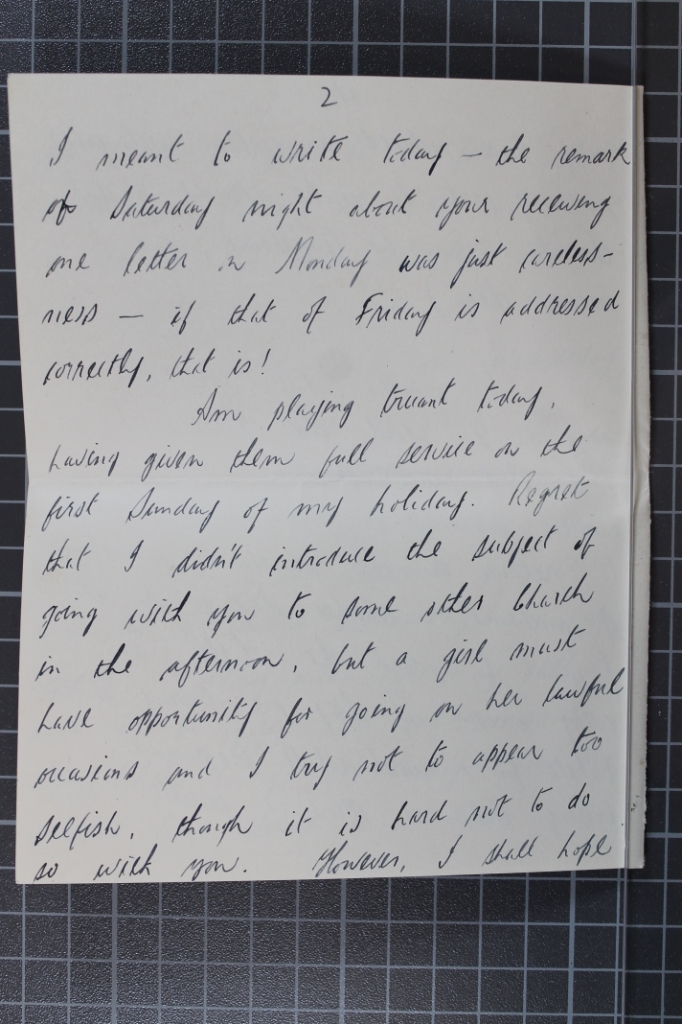 2
I meant to write today – the remark
of Saturday night about your receiving
one letter on Monday was just careless-
ness – if that of Friday is addressed
correctly, that is!
Am playing truant today,
having given them full service on the
first Sunday of my holiday. Regret
that I didn't introduce the subject of
going with you to some other Church
in the afternoon, but a girl must
have opportunity for going on her lawful
occasions and I try not to appear too
selfish, though it is hard not to do
so with you. However, I shall hope